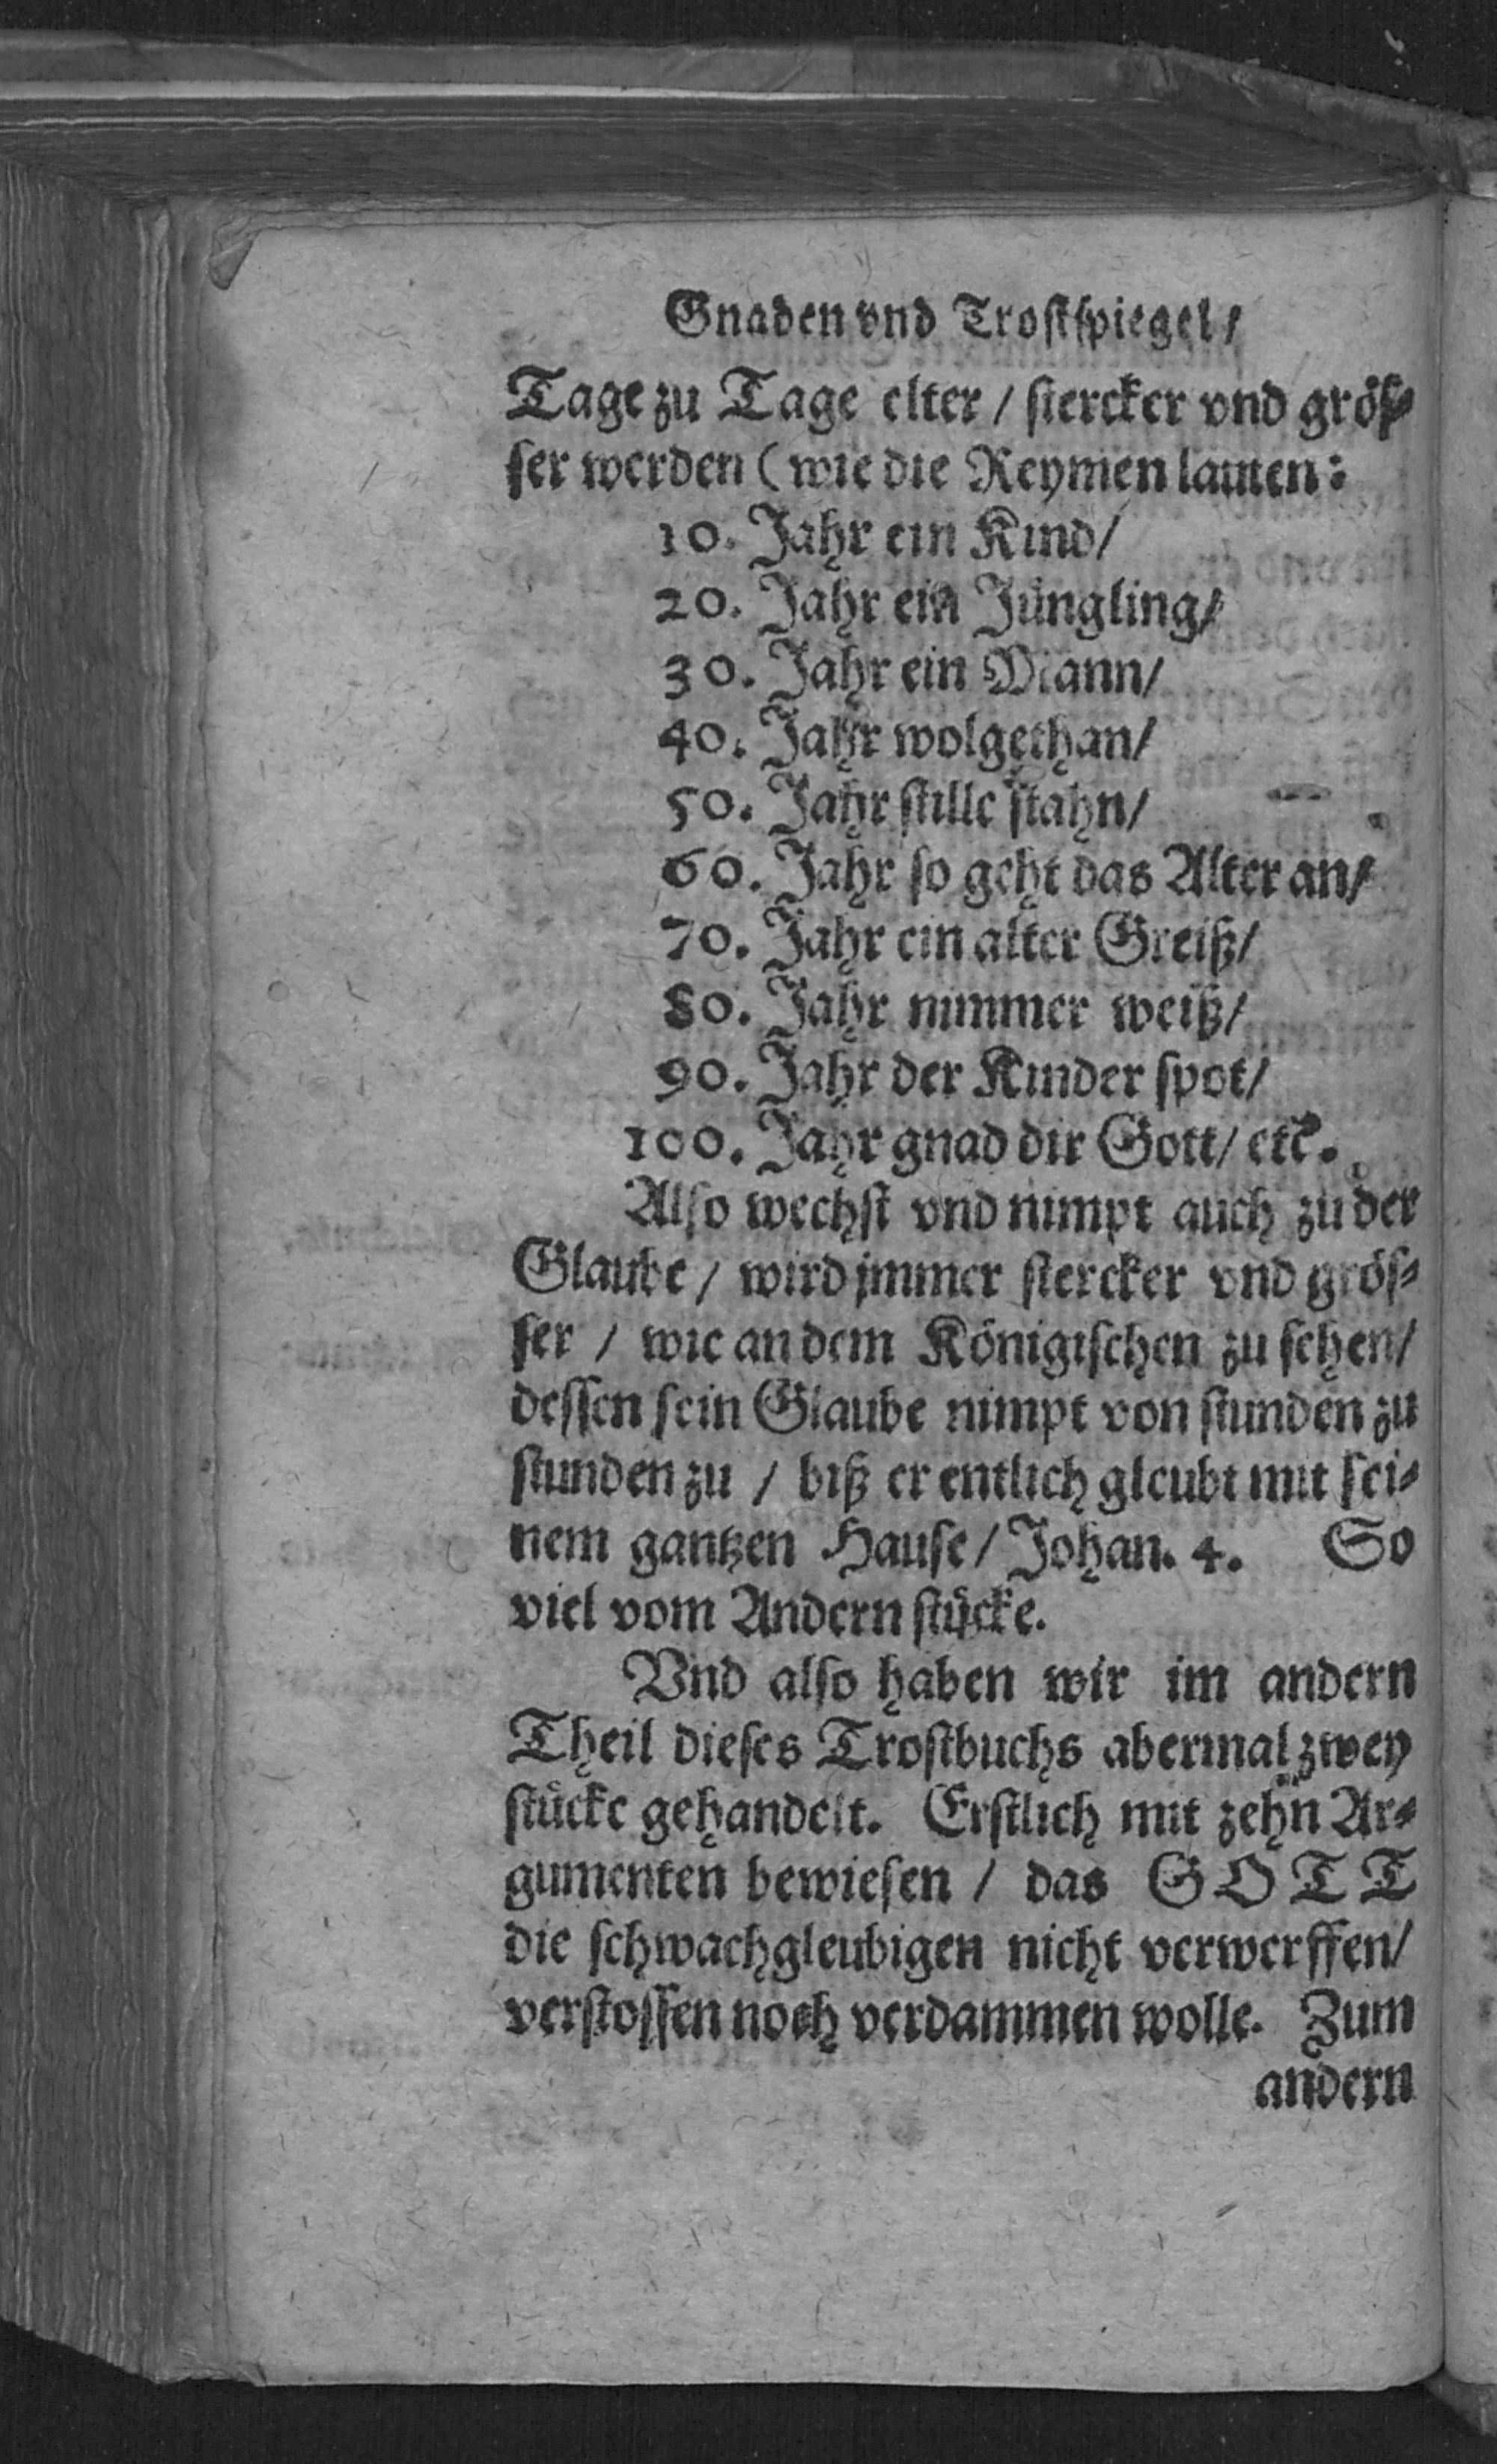 Gnaden vnd Trostspiegel/
Tage zu Tage elter / stercker vnd grös-
ser werden (wie die Reymen lauten:
10. Jahr ein Kind/
20. Jahr ein Jüngling/
30. Jahr ein Mann/
40. Jahr wolgethan/
50. Jahr stille stahn/
60. Jahr so geht das Alter an/
70. Jahr ein alter Greiß/
80. Jahr nimmer weiß/
90. Jahr der Kinder spot/
100. Jahr gnad dir Gott/ etc.
Also wechst vnd nimpt auch zu der
Glaube / wird jmmer stercker vnd grös-
ser / wie an dem Königischen zu sehen/
dessen sein Glaube nimpt von stunden zu
stunden zu / biß er entlich gleubt mit sei-
nem gantzen Hause / Johan. 4. So
viel vom Andern stücke.
Vnd also haben wir im andern
Theil dieses Trostbuchs abermal zwey
stücke gehandelt. Erstlich mit zehn Ar-
gumenten bewiesen / das GOTT
die schwachgleubigen nicht verwerffen/
verstossen noch verdammen wolle. Zum
andern